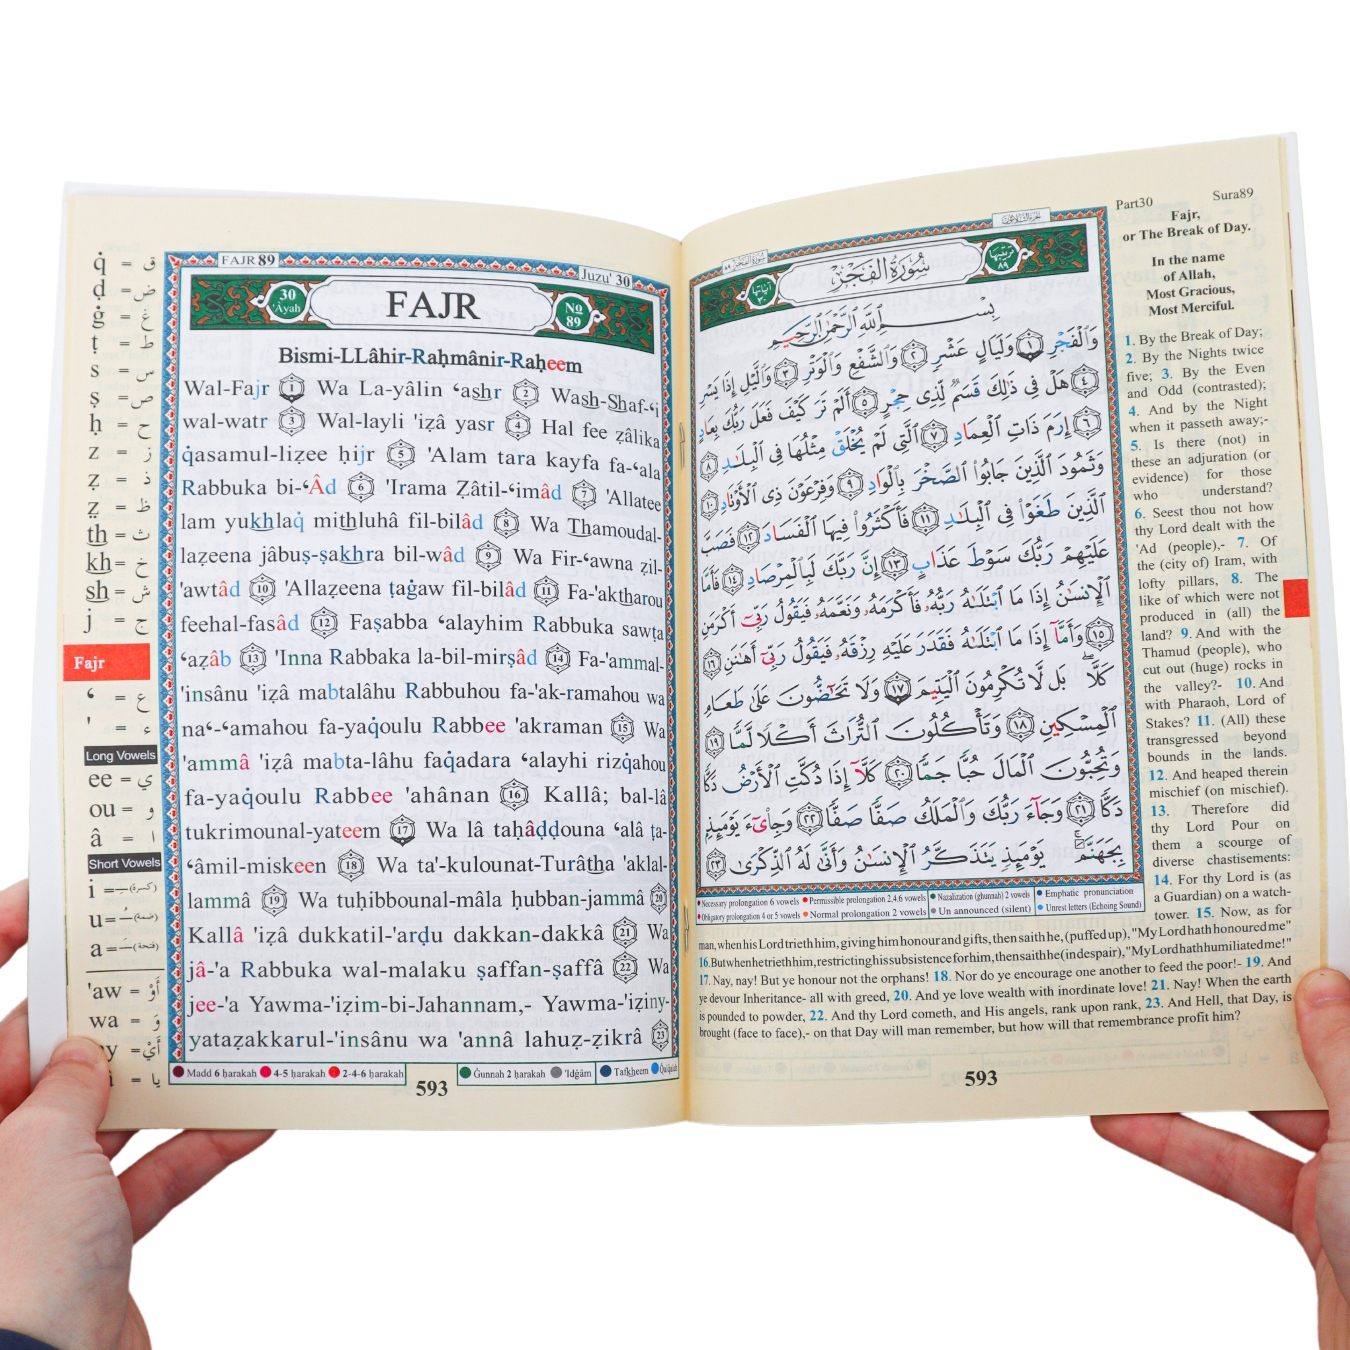 q̇ = ق
ḍ = ض
ġ = غ
ṭ = ط
s = س
ṣ = ص
ḥ = ح
z = ز
ẓ = ذ
z̤ = ظ
th = ث
kh = خ
sh = ش
j = ج
Fajr
‘ = ع
' = ء
Long Vowels
ee = ي
ou = و
â = ا
Short Vowels
i = (كسرة)
u = (ضمة)
a = (فتحة)
'aw = أَوْ
wa = وَ
ay = أَيْ
= يا
FAJR 89
Juzu' 30
30
'Âyah
FAJR
No
89
Bismi-LLâhir-Raḥmânir-Raḥeem
Wal-Fajr 1 Wa La-yâlin ‘ashr 2 Wash-Shaf-‘i
wal-watr 3 Wal-layli 'iẓâ yasr 4 Hal fee ẓâlika
q̇asamul-liẓee ḥijr 5 'Alam tara kayfa fa-‘ala
Rabbuka bi-‘Âd 6 'Irama Ẓâtil-‘imâd 7 'Allatee
lam yukhlaq̇ mithluhâ fil-bilâd 8 Wa Thamoudal-
laẓeena jâbuṣ-ṣakhra bil-wâd 9 Wa Fir-‘awna ẓil-
'awtâd 10 'Allaẓeena ṭaġaw fil-bilâd 11 Fa-'aktharou
feehal-fasâd 12 Faṣabba ‘alayhim Rabbuka sawṭa
‘aẓâb 13 'Inna Rabbaka la-bil-mirṣâd 14 Fa-'ammal-
'insânu 'iẓâ mabtalâhu Rabbuhou fa-'ak-ramahou wa
na‘-‘amahou fa-yaq̇oulu Rabbee 'akraman 15 Wa
'ammâ 'iẓâ mabta-lâhu faq̇adara ‘alayhi rizq̇ahou
fa-yaq̇oulu Rabbee 'ahânan 16 Kallâ; bal-lâ
tukrimounal-yateem 17 Wa lâ taḥâḍḍouna ‘alâ ṭa-
‘âmil-miskeen 18 Wa ta'-kulounat-Turâtha 'aklal-
lammâ 19 Wa tuḥibbounal-mâla ḥubban-jammâ 20
Kallâ 'iẓâ dukkatil-'arḍu dakkan-dakkâ 21 Wa
jâ-'a Rabbuka wal-malaku ṣaffan-ṣaffâ 22 Wa
jee-'a Yawma-'iẓim-bi-Jahannam,- Yawma-'iẓiny-
yataẓakkarul-'insânu wa 'annâ lahuẓ-ẓikrâ 23
Madd 6 ḥarakah 4-5 ḥarakah 2-4-6 ḥarakah
Ġunnah 2 ḥarakah 'Idġâm Tafkheem Q̇alq̇alah
593
الجزء الثلاثون
سورة الفجر ٨٩
ترتيبها
٨٩
سُورَةُ الفَجْرِ
آياتها
٣٠
بِسْمِ اللَّهِ الرَّحْمَٰنِ الرَّحِيمِ
وَالْفَجْرِ ١ وَلَيَالٍ عَشْرٍ ٢ وَالشَّفْعِ وَالْوَتْرِ ٣ وَاللَّيْلِ إِذَا يَسْرِ
٤ هَلْ فِي ذَٰلِكَ قَسَمٌ لِّذِي حِجْرٍ ٥ أَلَمْ تَرَ كَيْفَ فَعَلَ رَبُّكَ بِعَادٍ
٦ إِرَمَ ذَاتِ الْعِمَادِ ٧ الَّتِي لَمْ يُخْلَقْ مِثْلُهَا فِي الْبِلَٰدِ ٨
وَثَمُودَ الَّذِينَ جَابُوا الصَّخْرَ بِالْوَادِ ٩ وَفِرْعَوْنَ ذِي الْأَوْتَادِ ١٠
الَّذِينَ طَغَوْا فِي الْبِلَٰدِ ١١ فَأَكْثَرُوا فِيهَا الْفَسَادَ ١٢ فَصَبَّ
عَلَيْهِمْ رَبُّكَ سَوْطَ عَذَابٍ ١٣ إِنَّ رَبَّكَ لَبِالْمِرْصَادِ ١٤ فَأَمَّا
الْإِنسَٰنُ إِذَا مَا ابْتَلَىٰهُ رَبُّهُ فَأَكْرَمَهُ وَنَعَّمَهُ فَيَقُولُ رَبِّي أَكْرَمَنِ
١٥ وَأَمَّا إِذَا مَا ابْتَلَىٰهُ فَقَدَرَ عَلَيْهِ رِزْقَهُ فَيَقُولُ رَبِّي أَهَٰنَنِ ١٦
كَلَّا ۖ بَل لَّا تُكْرِمُونَ الْيَتِيمَ ١٧ وَلَا تَحَٰضُّونَ عَلَىٰ طَعَامِ
الْمِسْكِينِ ١٨ وَتَأْكُلُونَ التُّرَاثَ أَكْلًا لَّمًّا ١٩
وَتُحِبُّونَ الْمَالَ حُبًّا جَمًّا ٢٠ كَلَّا إِذَا دُكَّتِ الْأَرْضُ دَكًّا
دَكًّا ٢١ وَجَاءَ رَبُّكَ وَالْمَلَكُ صَفًّا صَفًّا ٢٢ وَجِايءَ يَوْمَئِذٍ
بِجَهَنَّمَ ۚ يَوْمَئِذٍ يَتَذَكَّرُ الْإِنسَٰنُ وَأَنَّىٰ لَهُ الذِّكْرَىٰ ٢٣
Necessary prolongation 6 vowels Permissible prolongation 2,4,6 vowels Nazalization (ghunnah) 2 vowels Emphatic pronunciation
Obligatory prolongation 4 or 5 vowels Normal prolongation 2 vowels Un announced (silent) Unrest letters (Echoing Sound)
Part30 Sura89
Fajr,
or The Break of Day.
In the name
of Allah,
Most Gracious,
Most Merciful.
1. By the Break of Day;
2. By the Nights twice
five; 3. By the Even
and Odd (contrasted);
4. And by the Night
when it passeth away;-
5. Is there (not) in
these an adjuration (or
evidence) for those
who understand?
6. Seest thou not how
thy Lord dealt with the
'Ad (people),- 7. Of
the (city of) Iram, with
lofty pillars, 8. The
like of which were not
produced in (all) the
land? 9. And with the
Thamud (people), who
cut out (huge) rocks in
the valley?- 10. And
with Pharaoh, Lord of
Stakes? 11. (All) these
transgressed beyond
bounds in the lands.
12. And heaped therein
mischief (on mischief).
13. Therefore did
thy Lord Pour on
them a scourge of
diverse chastisements:
14. For thy Lord is (as
a Guardian) on a watch-
tower. 15. Now, as for
man, when his Lord trieth him, giving him honour and gifts, then saith he, (puffed up), "My Lord hath honoured me"
16. But when he trieth him, restricting his subsistence for him, then saith he (in despair), "My Lord hath humiliated me!"
17. Nay, nay! But ye honour not the orphans! 18. Nor do ye encourage one another to feed the poor!- 19. And
ye devour Inheritance- all with greed, 20. And ye love wealth with inordinate love! 21. Nay! When the earth
is pounded to powder, 22. And thy Lord cometh, and His angels, rank upon rank, 23. And Hell, that Day, is
brought (face to face),- on that Day will man remember, but how will that remembrance profit him?
593